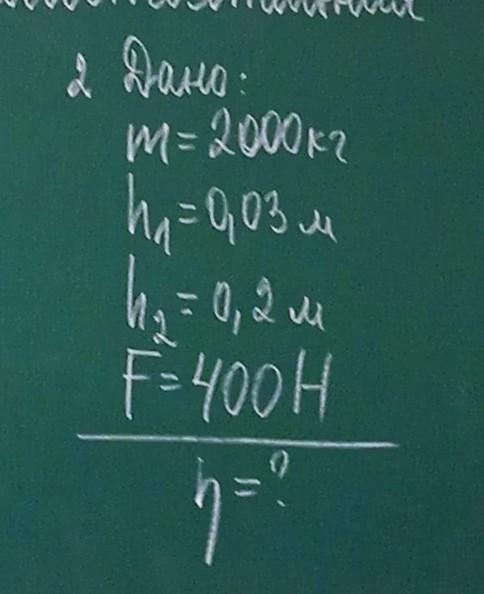 2 Дано:
m=2000кг
h₁=0,03 м
h₂=0,2 м
F=400Н
η=?